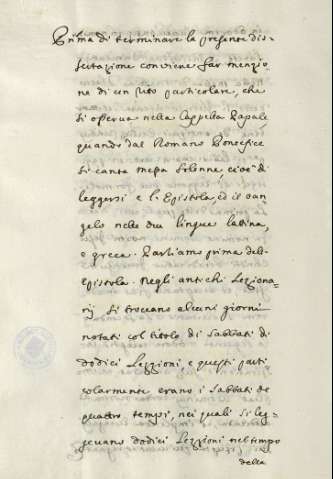 Prima di terminare la presente dis-
sertazione conviene far menzio
ne di un rito particolare, che
si osserva nella Cappella Papale
quando dal Romano Pontefice
si canta messa solenne, cioè di
leggersi e l'Epistola, ed il van-
gelo nelle due lingue latina,
e greca. Parliamo prima dell'
Epistola. Negli antichi Leziona-
rj si trovano alcuni giorni
notati col titolo di Sabbati di
dodici Lezzioni, e questi parti
colarmente erano i Sabbati de
quattro tempi, nei quali si leg-
gevano dodici Lezzioni nel tempo
della